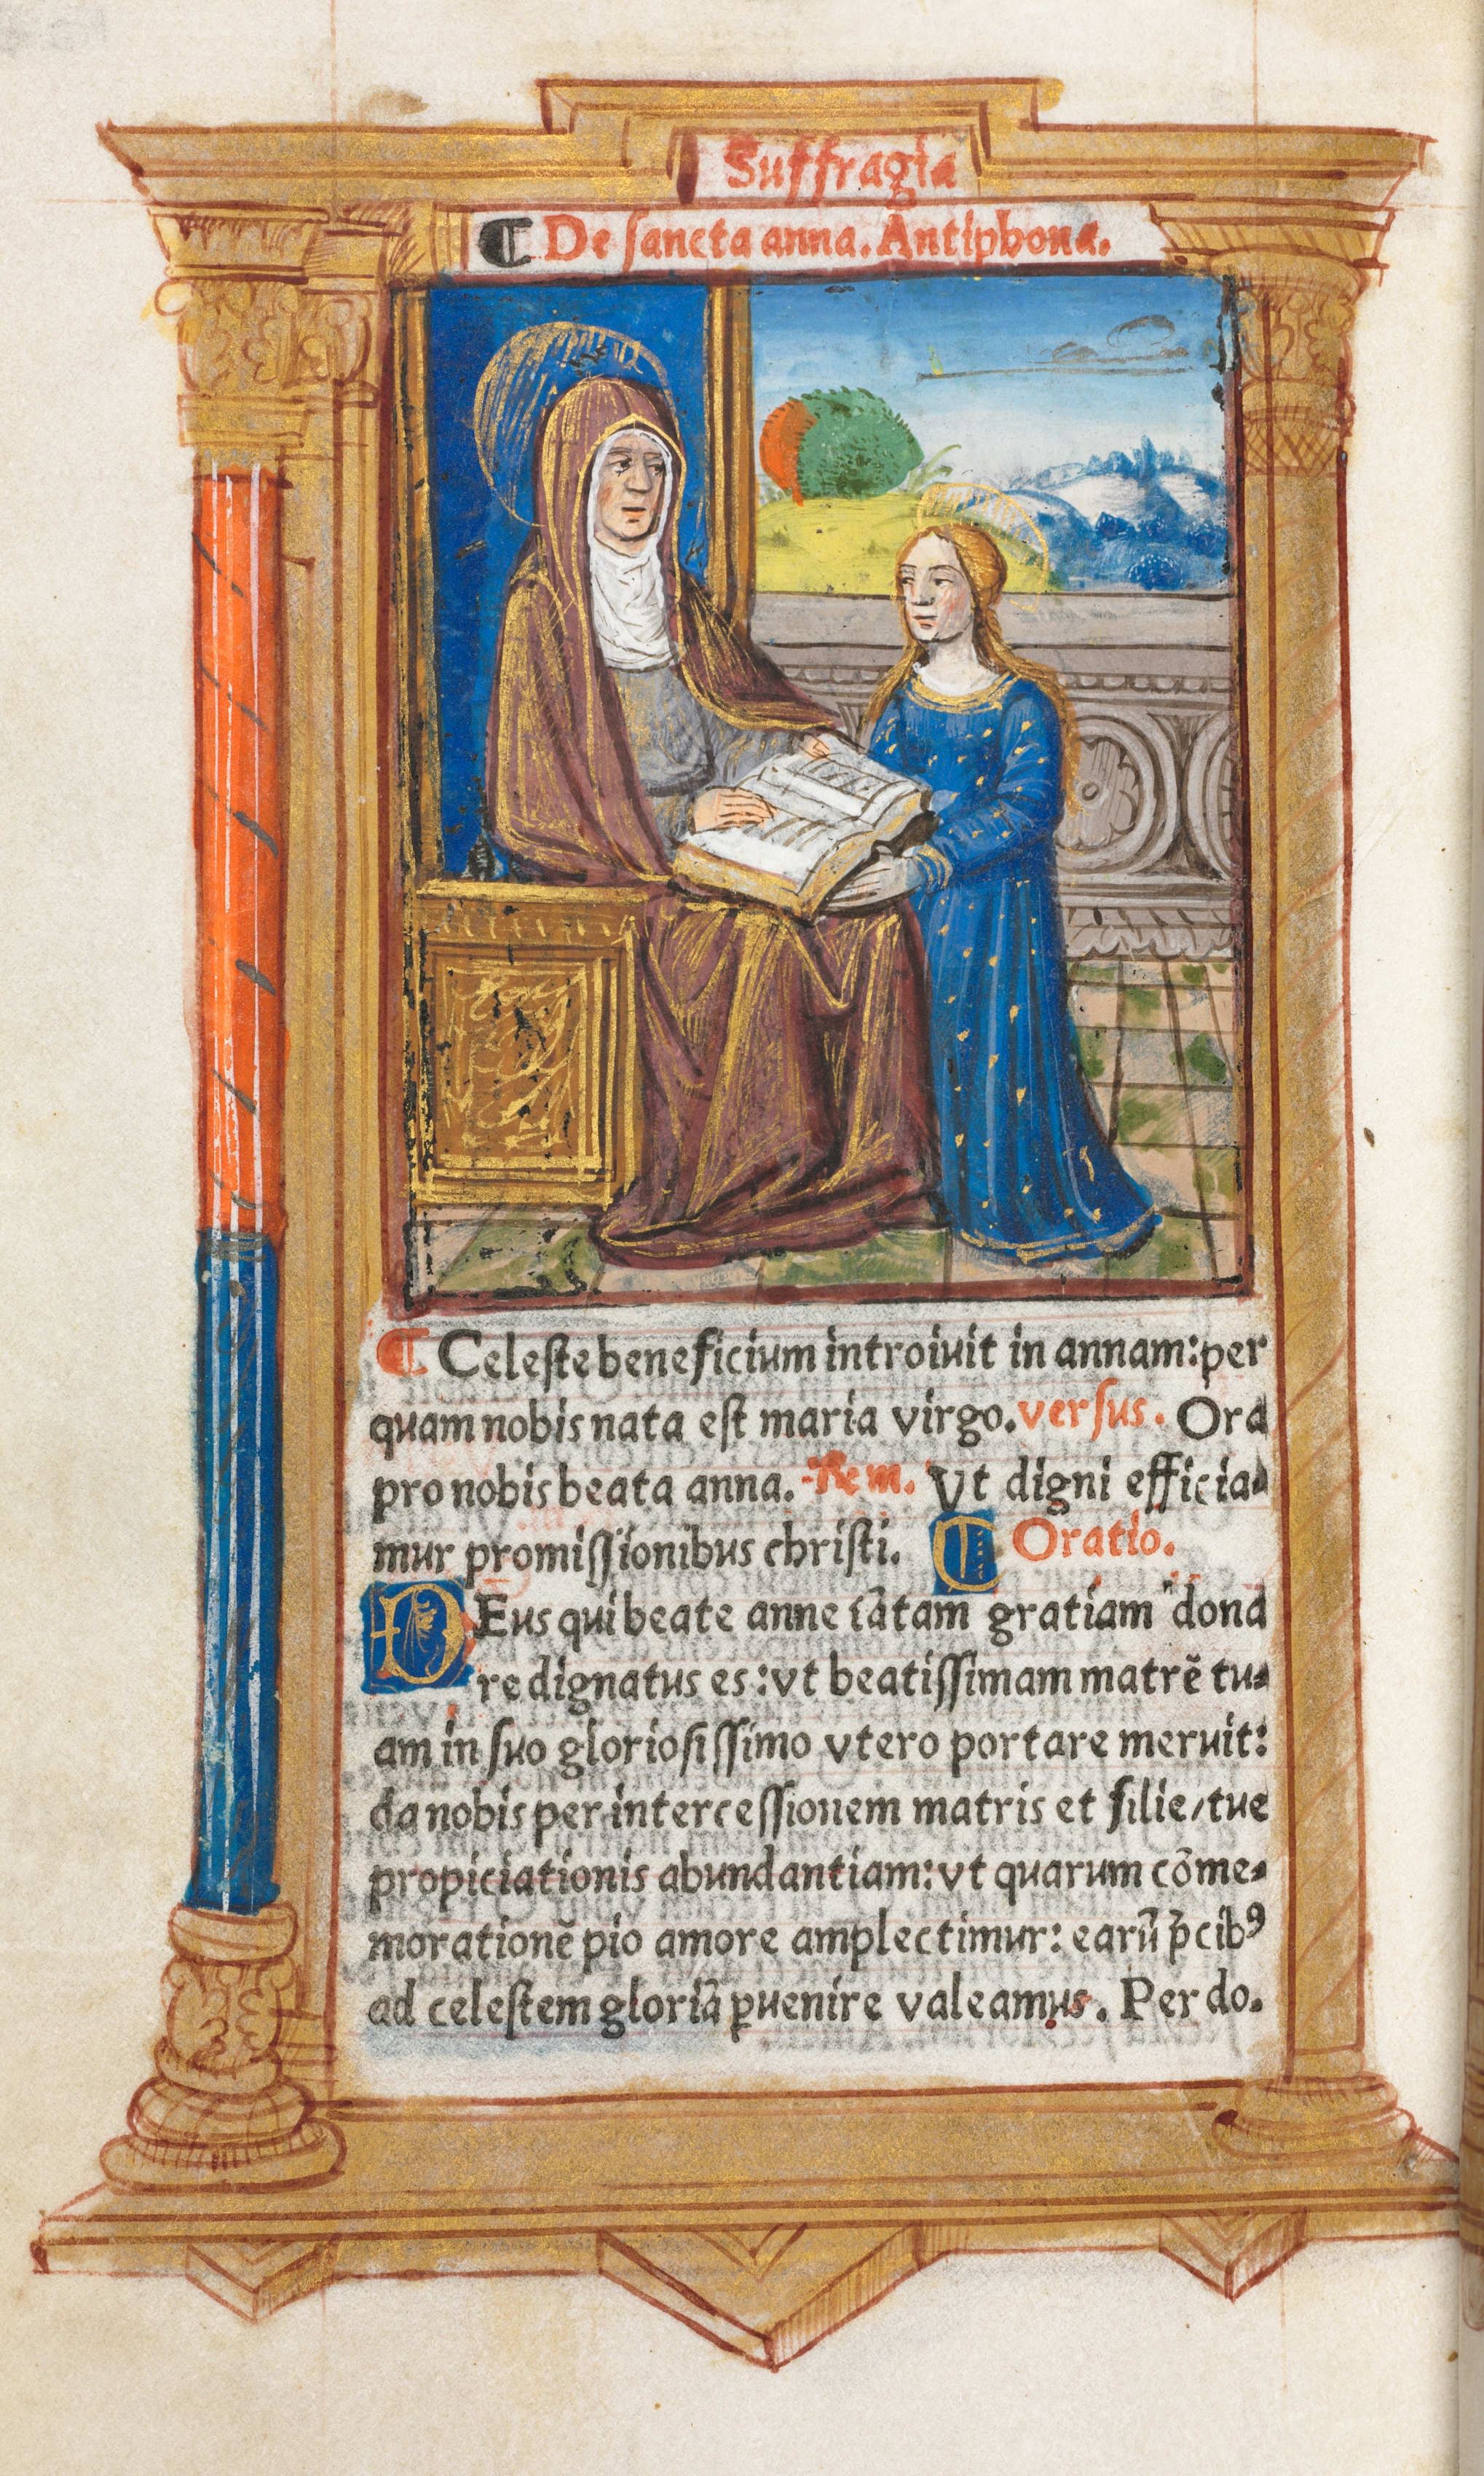 Suffragia
¶ De ſancta anna. Antiphona.
¶ Celeſte beneficium introiuit in annam: per
quam nobis nata eſt maria virgo. verſus. Ora
pro nobis beata anna. Rem. Vt digni efficia⸗
mur promiſſionibus chriſti. ¶ Oratio.
DEus qui beate anne tãtam gratiam dona
re dignatus es: vt beatiſſimam matrẽ tu⸗
am in ſuo glorioſiſſimo vtero portare meruit:
da nobis per interceſſionem matris et filie/tue
propiciationis abundantiam: vt quarum cõme⸗
morationẽ pio amore amplectimur: earũ p̃cibꝰ
ad celeſtem gloriã ꝑuenire valeamus. Per do.